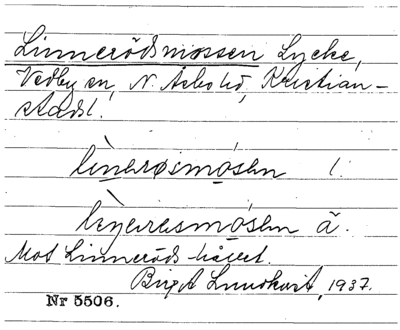 Linnerödsmossen Lycke,
Vedby sn, N. Åsbo hd, Kristian-
stadsl.
linerøsmósen l.
mósen ä.
Mot Linneröds-hållet.
Birgit Lundkvist, 1937.
Nr 5506.